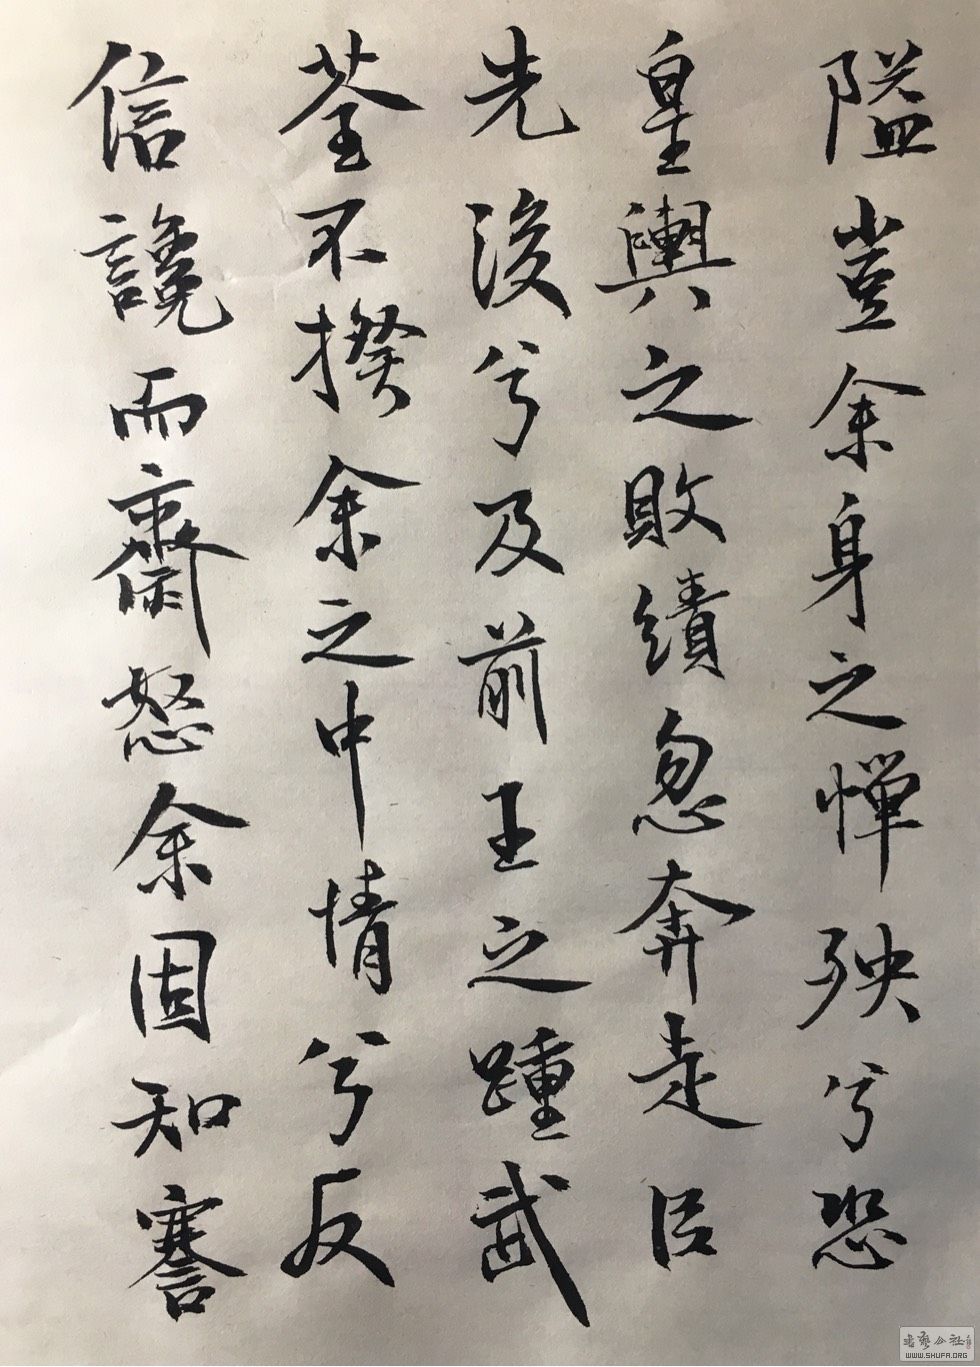 隘豈余身之憚殃兮恐
皇輿之敗績忽奔走㠯
先後兮及前王之踵武
荃不揆余之中情兮反
信讒而齋怒余固知謇
書藝公社
WWW.SHUFA.ORG